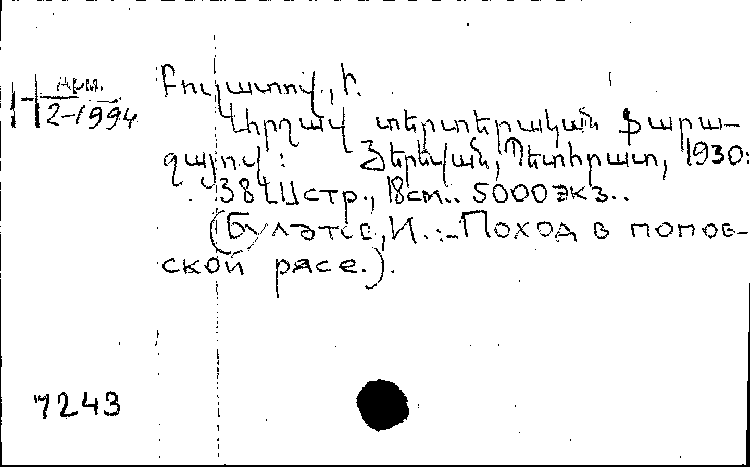 Арм.
2-1994
Բուլատով, Ի.
Արշավ տերտերական փարա-
ջայով: Յերեվան, Պետհրատ, 1930:
38 стр., 18 см.. 5000 экз..
(Булатов, И. :-Поход в попов-
ской рясе.).
7243